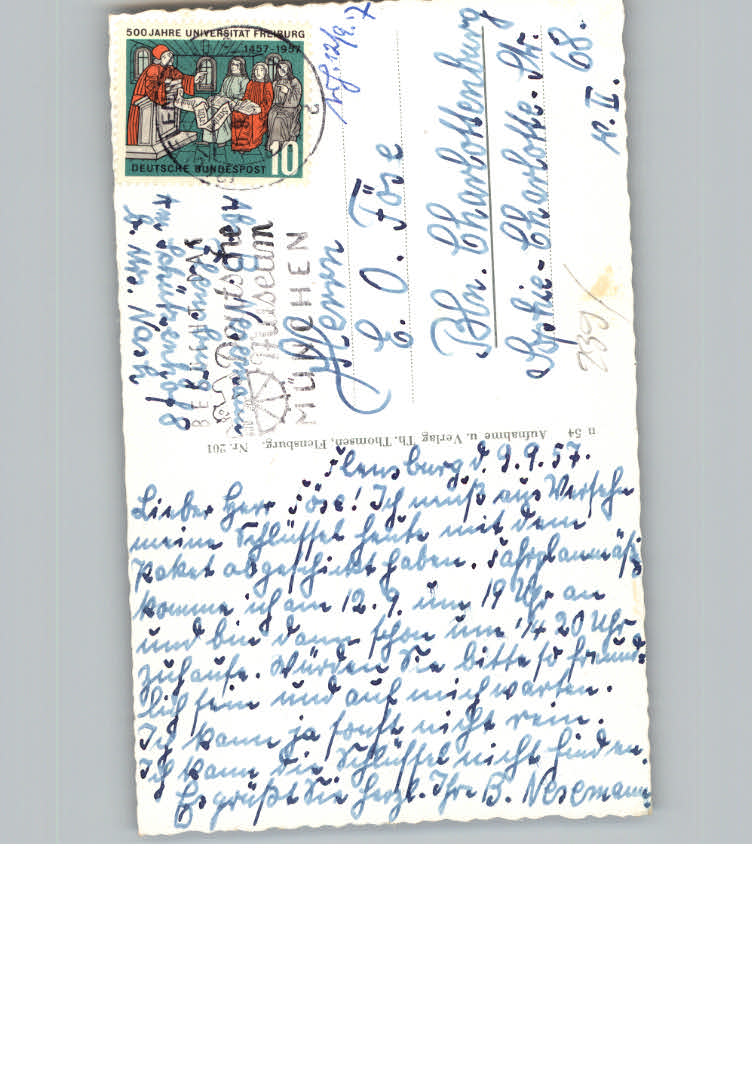 500 JAHRE UNIVERSITÄT FREIBURG
1457-1957
10
DEUTSCHE BUNDESPOST
BESUCHT DAS
Deutsche
Museum
MÜNCHEN
Abs. Nesemann
Flensburg
Am Schützenhof 8
b. Nash
Herrn
E. O. Föse
Bln. Charlottenburg
Sophie-Charlotte-Str.
68.
II.
239/
n 54 Aufnahme u. Verlag Th. Thomsen, Flensburg. Nr. 201
Flensburg d. 9.9.57.
Lieber Herr Föse! Ich muß aus Versehn
meine Schlüssel heute mit dem
Paket abgeschickt haben. Fahrplanmäßig
komme ich am 12.9. um 19 Uhr an
und bin dann schon um ¼ 20 Uhr
zuhause. Würden Sie bitte so freund-
lich sein und auf mich warten.
Ich kann ja sonst nicht rein.
Ich kann die Schlüssel nicht finden.
Es grüßt Sie herzl. Ihre B. Nesemann